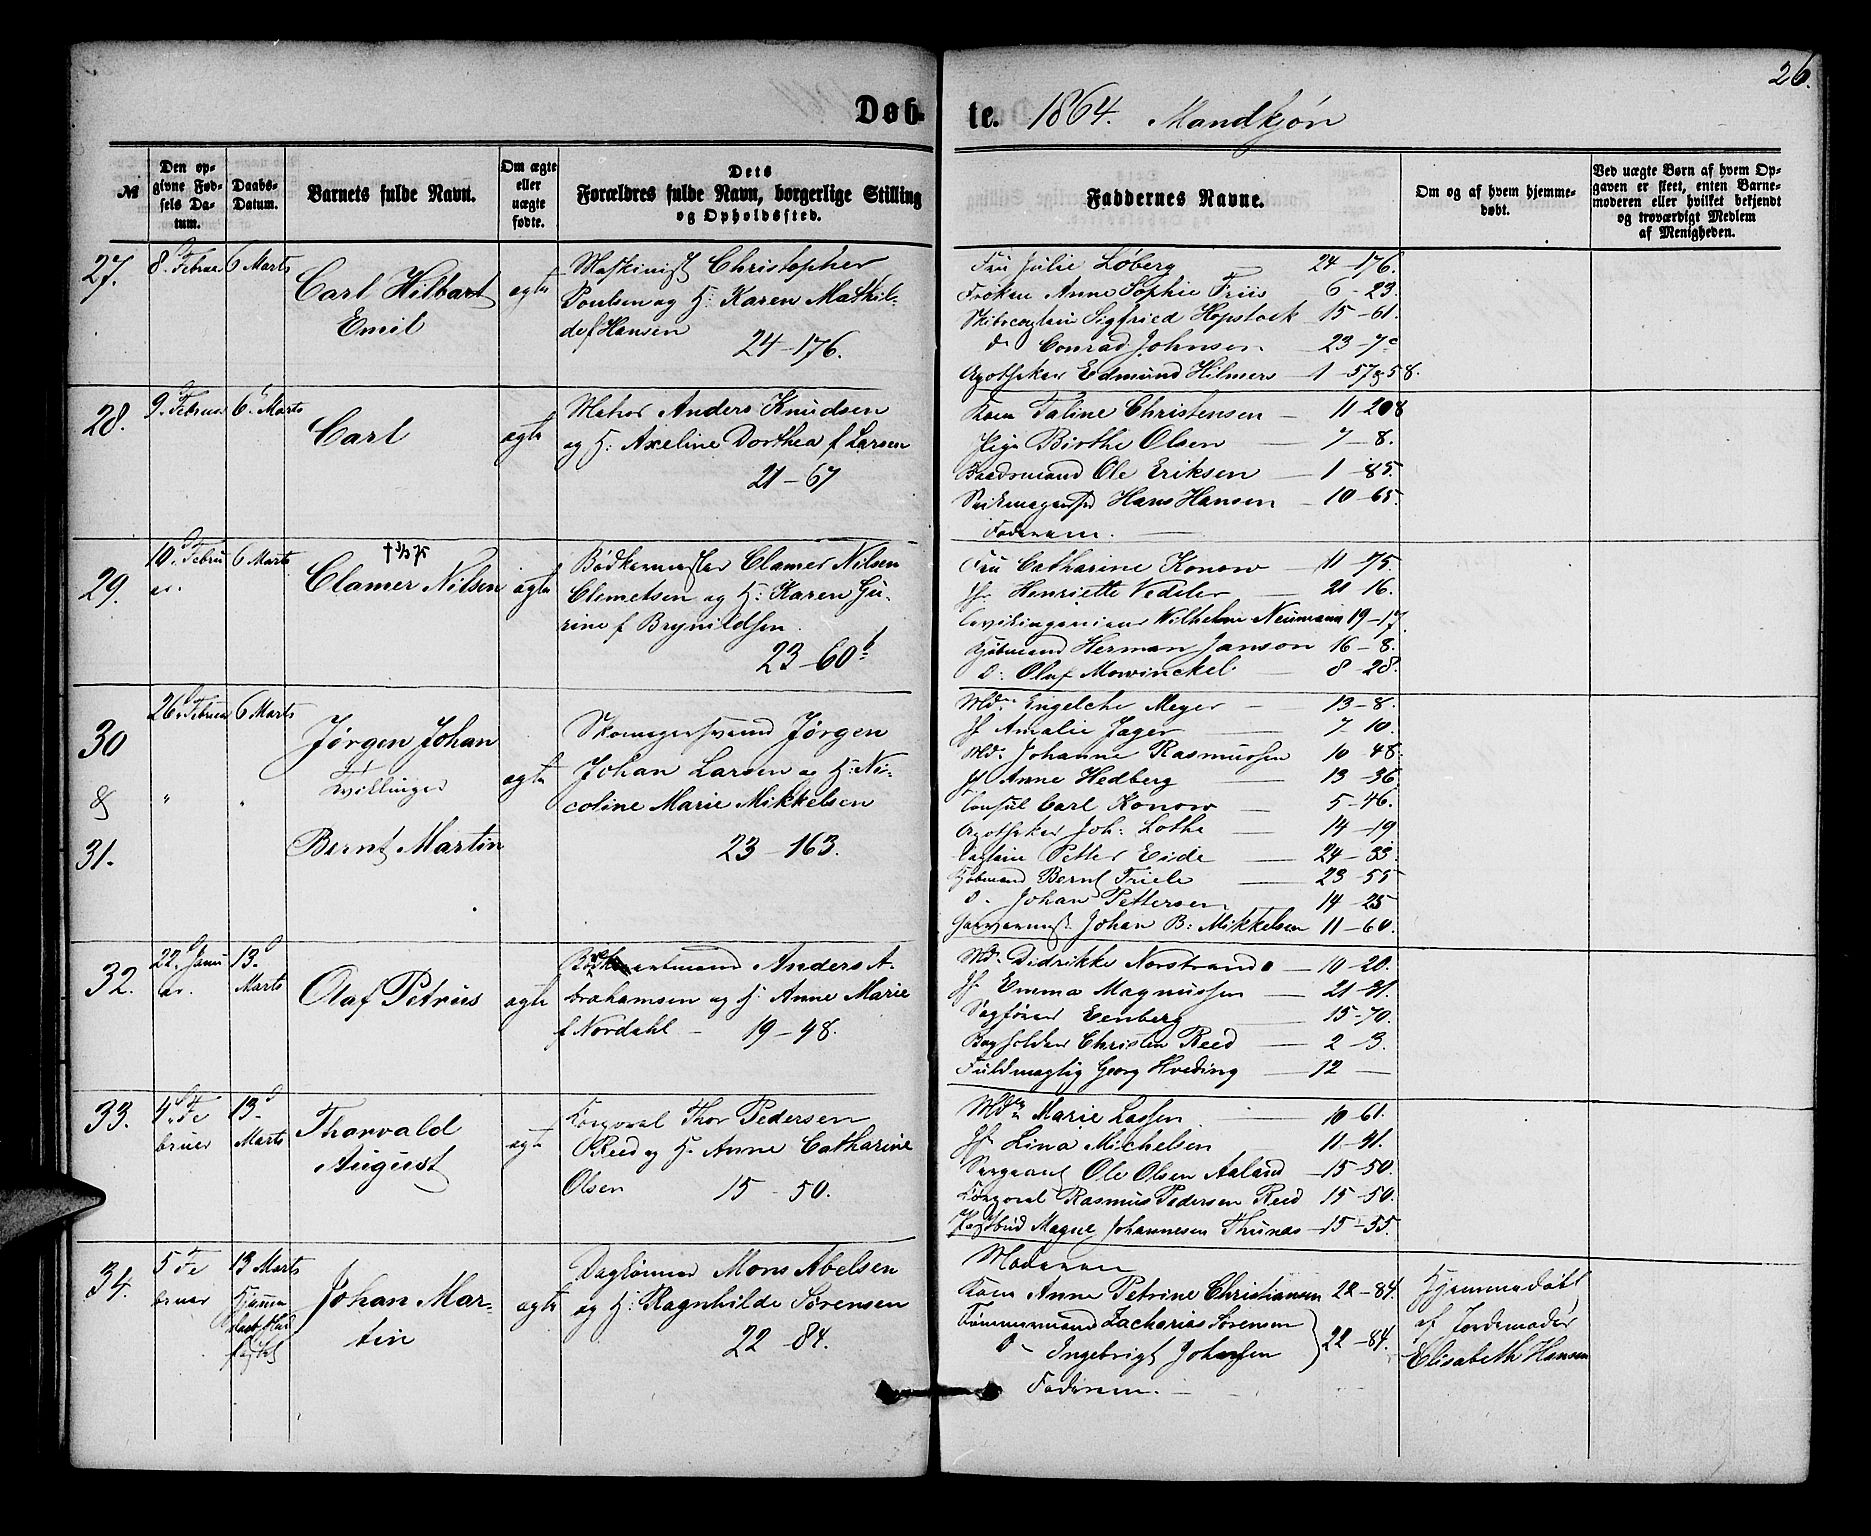 26.
Døb-
te. 1864. Mandkjøn
№
Den op-
givne Fød-
sels Da-
tum.
Daabs-
Datum.
Barnets fulde Navn.
Om ægte
eller
uægte
fødte.
Dets
Forældres fulde Navn, borgerlige Stilling
og Opholdssted.
Faddernes Navne.
Om og af hvem hjemme-
døbt.
Ved uægte Børn af hvem Op-
gaven er skeet, enten Barne-
moderen eller hvilket bekjendt
og troværdigt Medlem
af Menigheden.
27.
8. Februar
6 Marts
Carl Hilbart
Emil
ægte
Maskinist Christopher
Poulsen og H: Karen Mathil-
de f Hansen
24-176.
Fru Julie Löberg 24-176.
Frøken Anne Sophie Friis 6-23.
Skibscaptain Sigfried Hopstock 15-61.
d Conrad Johnsen 23-7
Apotheker Edmund Hilmers 1-57 & 58.
28.
9. Februar
6. Marts
Carl
ægte
Anders Knudsen
og H: Axeline Dorthea f Larsen
21-67
Kone Taline Christensen 11-208
Pige Birthe Olsen 7-8.
Baadsmand Ole Eriksen 1-85.
Hans Hansen 10-65
Faderen.
29.
10. Febru
ar.
6 Marts
Clamer Nilsen
ægte
Bødkermester Clamer Nilsen
Clemetsen og H: Karen Gu-
rine f Brynildsen
23-60b
Fru Catharine Konow 11-75.
Jf. Henriette Vedeler 21 16.
Wilhelm Neumann 19-17.
Kjøbmand Herman Janson 16-8.
D: Olaf Mowinckel 8-28.
30
&
31.
26. Februar
6 Marts
"
"
Jørgen Johan
Tvillinger
Bernt Martin
ægte
Skomagersvend Jørgen
Johan Larsen og H: Ni-
coline Marie Mikkelsen
23-163.
Md. Engelche Meyer 13-8.
Jf Amalie Jager 7-10.
Md. Johanne Rasmussen 10 48.
Jf Anne Hedberg 13-36
Consul Carl Konow 5-46.
Apotheker Joh: Lothe 14-19
Captain Petter Eide 24-33.
Kjøbmand Bernt Friele 23-55
D. Johan Pettersen 14-25
Johan B: Mikkelsen 11-60.
32.
22. Janu
ar.
13.
Marts
Olaf Petrus
ægte
Anders A-
brahamsen og H: Anne Marie
f Nordahl 19-48.
Md. Didrikke Norstrand 10-20.
Jf. Emma Magnussen 21-31.
Sagfører Eenberg 15-70.
Bogholder Christen Reed 2-3.
Fuldmægtig Georg Hveding 12
33.
4. Fe
bruar
13.
Marts
Thorvald
August
ægte
Korporal Thor Pedersen
Reed og H. Anne Catharine
Olsen 15-50.
Md Marie Lassen 10 61.
Jf. Lina Michelsen 11-31.
Sergeant Ole Olsen Aaland 15-50.
Korporal Rasmus Pedersen Reed 15-50.
Postbud Magne Johannesen Thunæs 15-55.
34.
5 Fe
bruar
13 Marts
Hjemme
døbt
Johan Mar-
tin
ægte
Daglønner Mons Abelsen
og H: Ragnhilde Sørensen
22-84.
Moderen
Kone Anne Petrine Christiansen 22-84.
Tømmermand Zacharias Sørensen
D Ingebrigt Johnsen
22-84.
Faderen.
Hjemmedøbt
af Jordemoder
Elisabeth Hansen